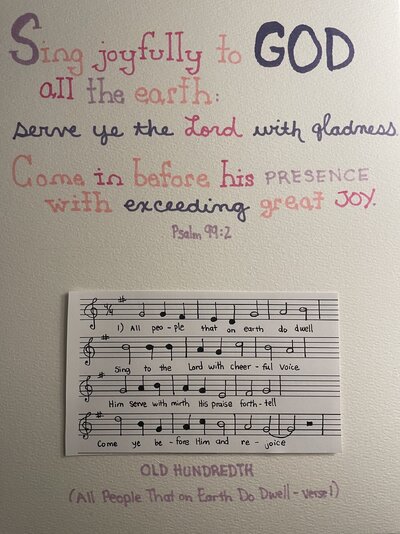 Sing joyfully to GOD
all the earth:
serve ye the Lord with gladness.
Come in before his PRESENCE
with exceeding great JOY.
Psalm 99:2
1) All peo-ple that on earth do dwell
Sing to the Lord with cheer-ful voice
Him serve with mirth His praise forth-tell
Come ye be-fore Him and re-joice
OLD HUNDREDTH
(All People That on Earth Do Dwell-verse 1)